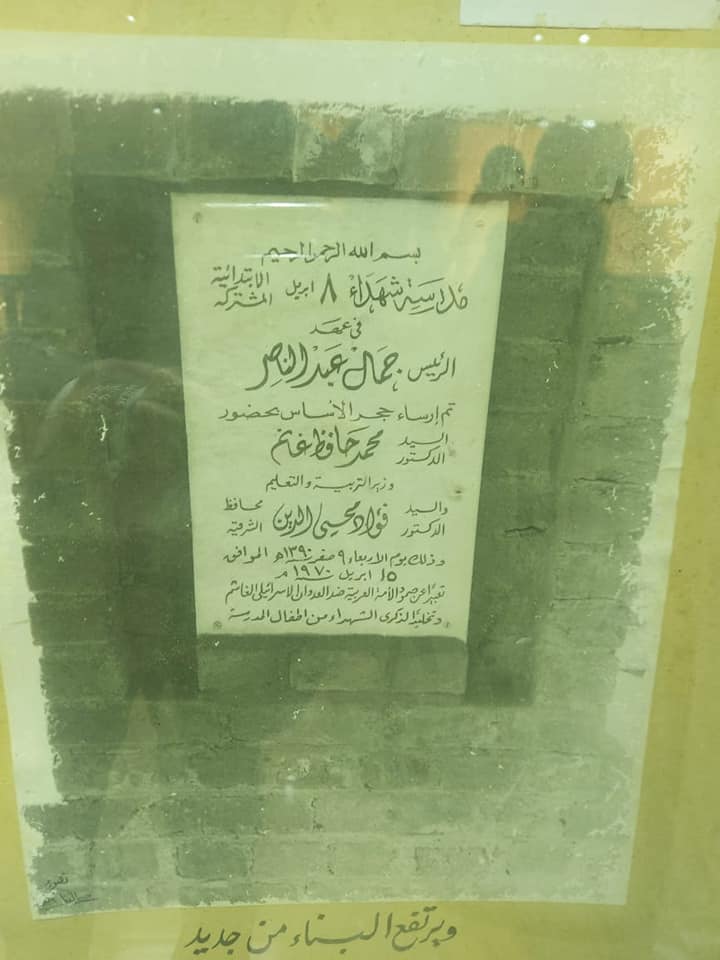 بسم الله الرحمن الرحيم
مدرسة شهداء ٨ ابريل الابتدائية المشتركة
فى عهد
الرئيس جمال عبد الناصر
تم إرساء حجر الأساس بحضور
السيد الدكتور محمد حافظ غانم
وزير التربية والتعليم
والسيد الدكتور فؤاد محيى الدين محافظ الشرقية
وذلك يوم الاربعاء ٩ صفر ١٣٩٠ه الموافق
١٥ ابريل ١٩٧٠ م
تعبيرًا عن صمود الأمة العربية ضد العدوان الاسرائيلى الغاشم
وتخليدًا لذكرى الشهداء من اطفال المدرسة
تصوير
ويرتفع البناء من جديد